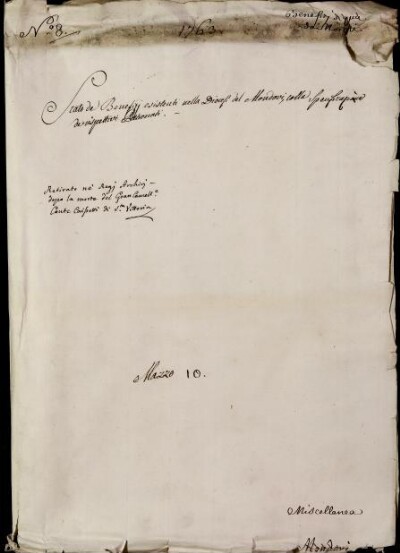 Nº 8.
1763
Benefizj di qua
Stato de' Benefizj esistenti nella Diocesi del Mondovì, colla specificazione
de' rispettivi Patronati. -
Ritirato ne' Regj Archivj -
dopo la morte del Gran Cancell.e
Conte Caissotti di S.ta Vittoria
Mazzo 10.
Miscellanea
Mondovì